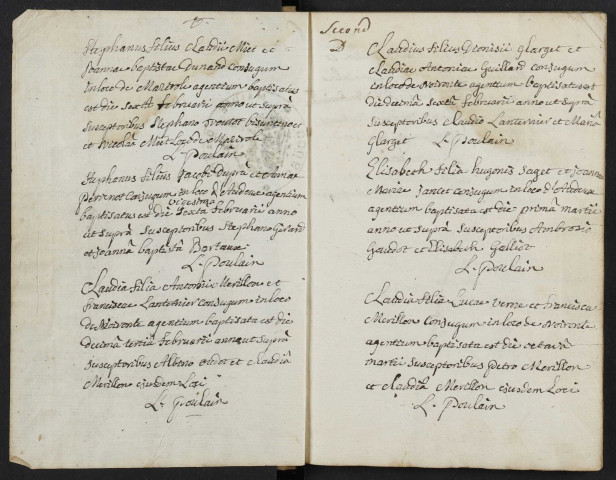 Stephanus filius Claudii Miet et
Joannae baptistae Durand conjugum
in loco de Mazerole agentium baptisatus
est die sexta februarii anno ut supra
susceptoribus Stephano bisuntino
et Nicolae Miet loci de Mazerole
L. Poulain
Stephanus filius Jacobi Dupra et
Perrenot conjugum in loco d'Audeux agentium
vigesima
baptisatus est die sexta februarii anno
ut supra susceptoribus Stephano Girard
et Joanna baptista Bortaux
L. Poulain
Claudia filia Antonii Merillon et
franciscae Lanternier conjugum in loco
de Noironte agentium baptisata est die
decima tertia februarii anno ut supra
susceptoribus Albino oudot et Claudia
Merillon ejusdem loci
L. Poulain
Second
Claudius filius Dionisii Glarget et
Claudiae Antoniae Guillard conjugum
in loco de Noironte agentium baptisatus est
die decima sexta februarii anno ut supra
susceptoribus Claudio Lanternier et Maria
Glarget L. Poulain
Elisabeth filia hugonis Saget et Joannae
Mariae Jancet conjugum in loco d'Audeux
agentium baptisata est die prima martii
anno ut supra susceptoribus Ambrosio
Gaudot et Elisabeth Galliot
L. Poulain
Claudia filia Lucae Verne et francisca
Merillon conjugum in loco de Noironte
agentium baptisata est die octava
martii susceptoribus petro Merillon
et Claudia Merillon ejusdem loci
L. Poulain